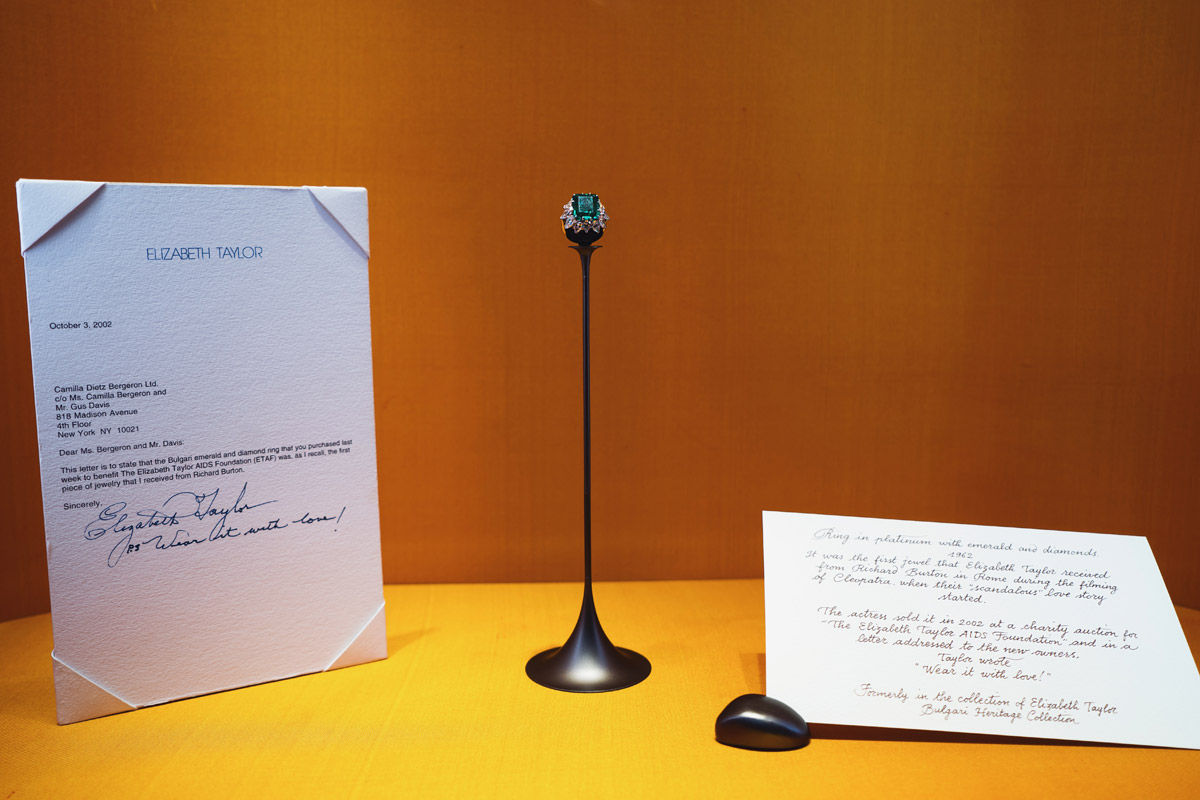 ELIZABETH TAYLOR
October 3, 2002
Camilla Dietz Bergeron Ltd.
c/o Ms. Camilla Bergeron and
Mr. Gus Davis
818 Madison Avenue
4th Floor
New York NY 10021
Dear Ms. Bergeron and Mr. Davis:
This letter is to state that the Bulgari emerald and diamond ring that you purchased last
week to benefit The Elizabeth Taylor AIDS Foundation (ETAF) was, as I recall, the first
piece of jewelry that I received from Richard Burton.
Sincerely,
Elizabeth Taylor
PS Wear it with love!
Ring in platinum with emerald and diamonds
1962
It was the first jewel that Elizabeth Taylor received
from Richard Burton in Rome during the filming
of Cleopatra, when their "scandalous" love story
started.
The actress sold it in 2002 at a charity auction for
"The Elizabeth Taylor AIDS Foundation" and in a
letter addressed to the new owners,
Taylor wrote
"Wear it with love!"
Formerly in the collection of Elizabeth Taylor
Bulgari Heritage Collection